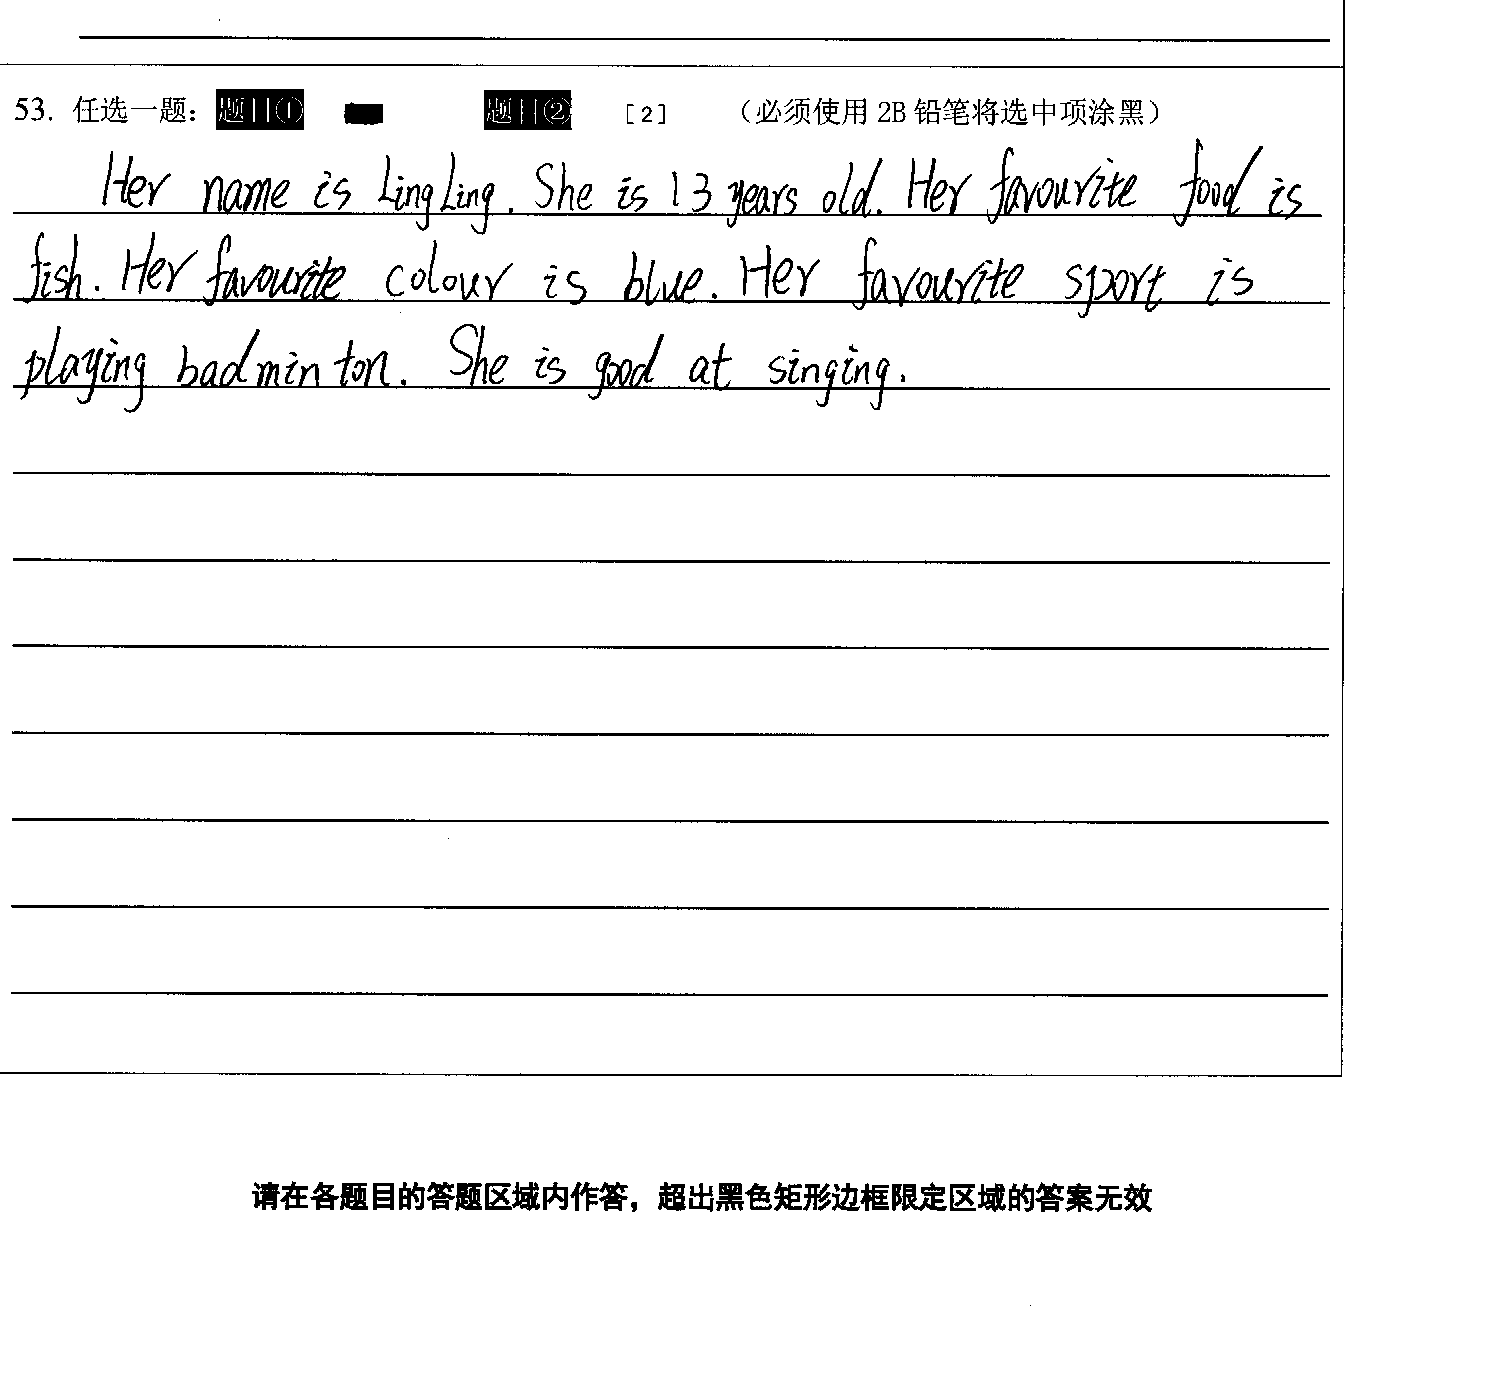 53. 任选一题： 题目① 题目② [2] （必须使用 2B 铅笔将选中项涂黑）
Her name is LingLing. She is 13 years old. Her favourite food is
fish. Her favourite colour is blue. Her favourite sport is
playing badminton. She is good at singing.
请在各题目的答题区域内作答，超出黑色矩形边框限定区域的答案无效